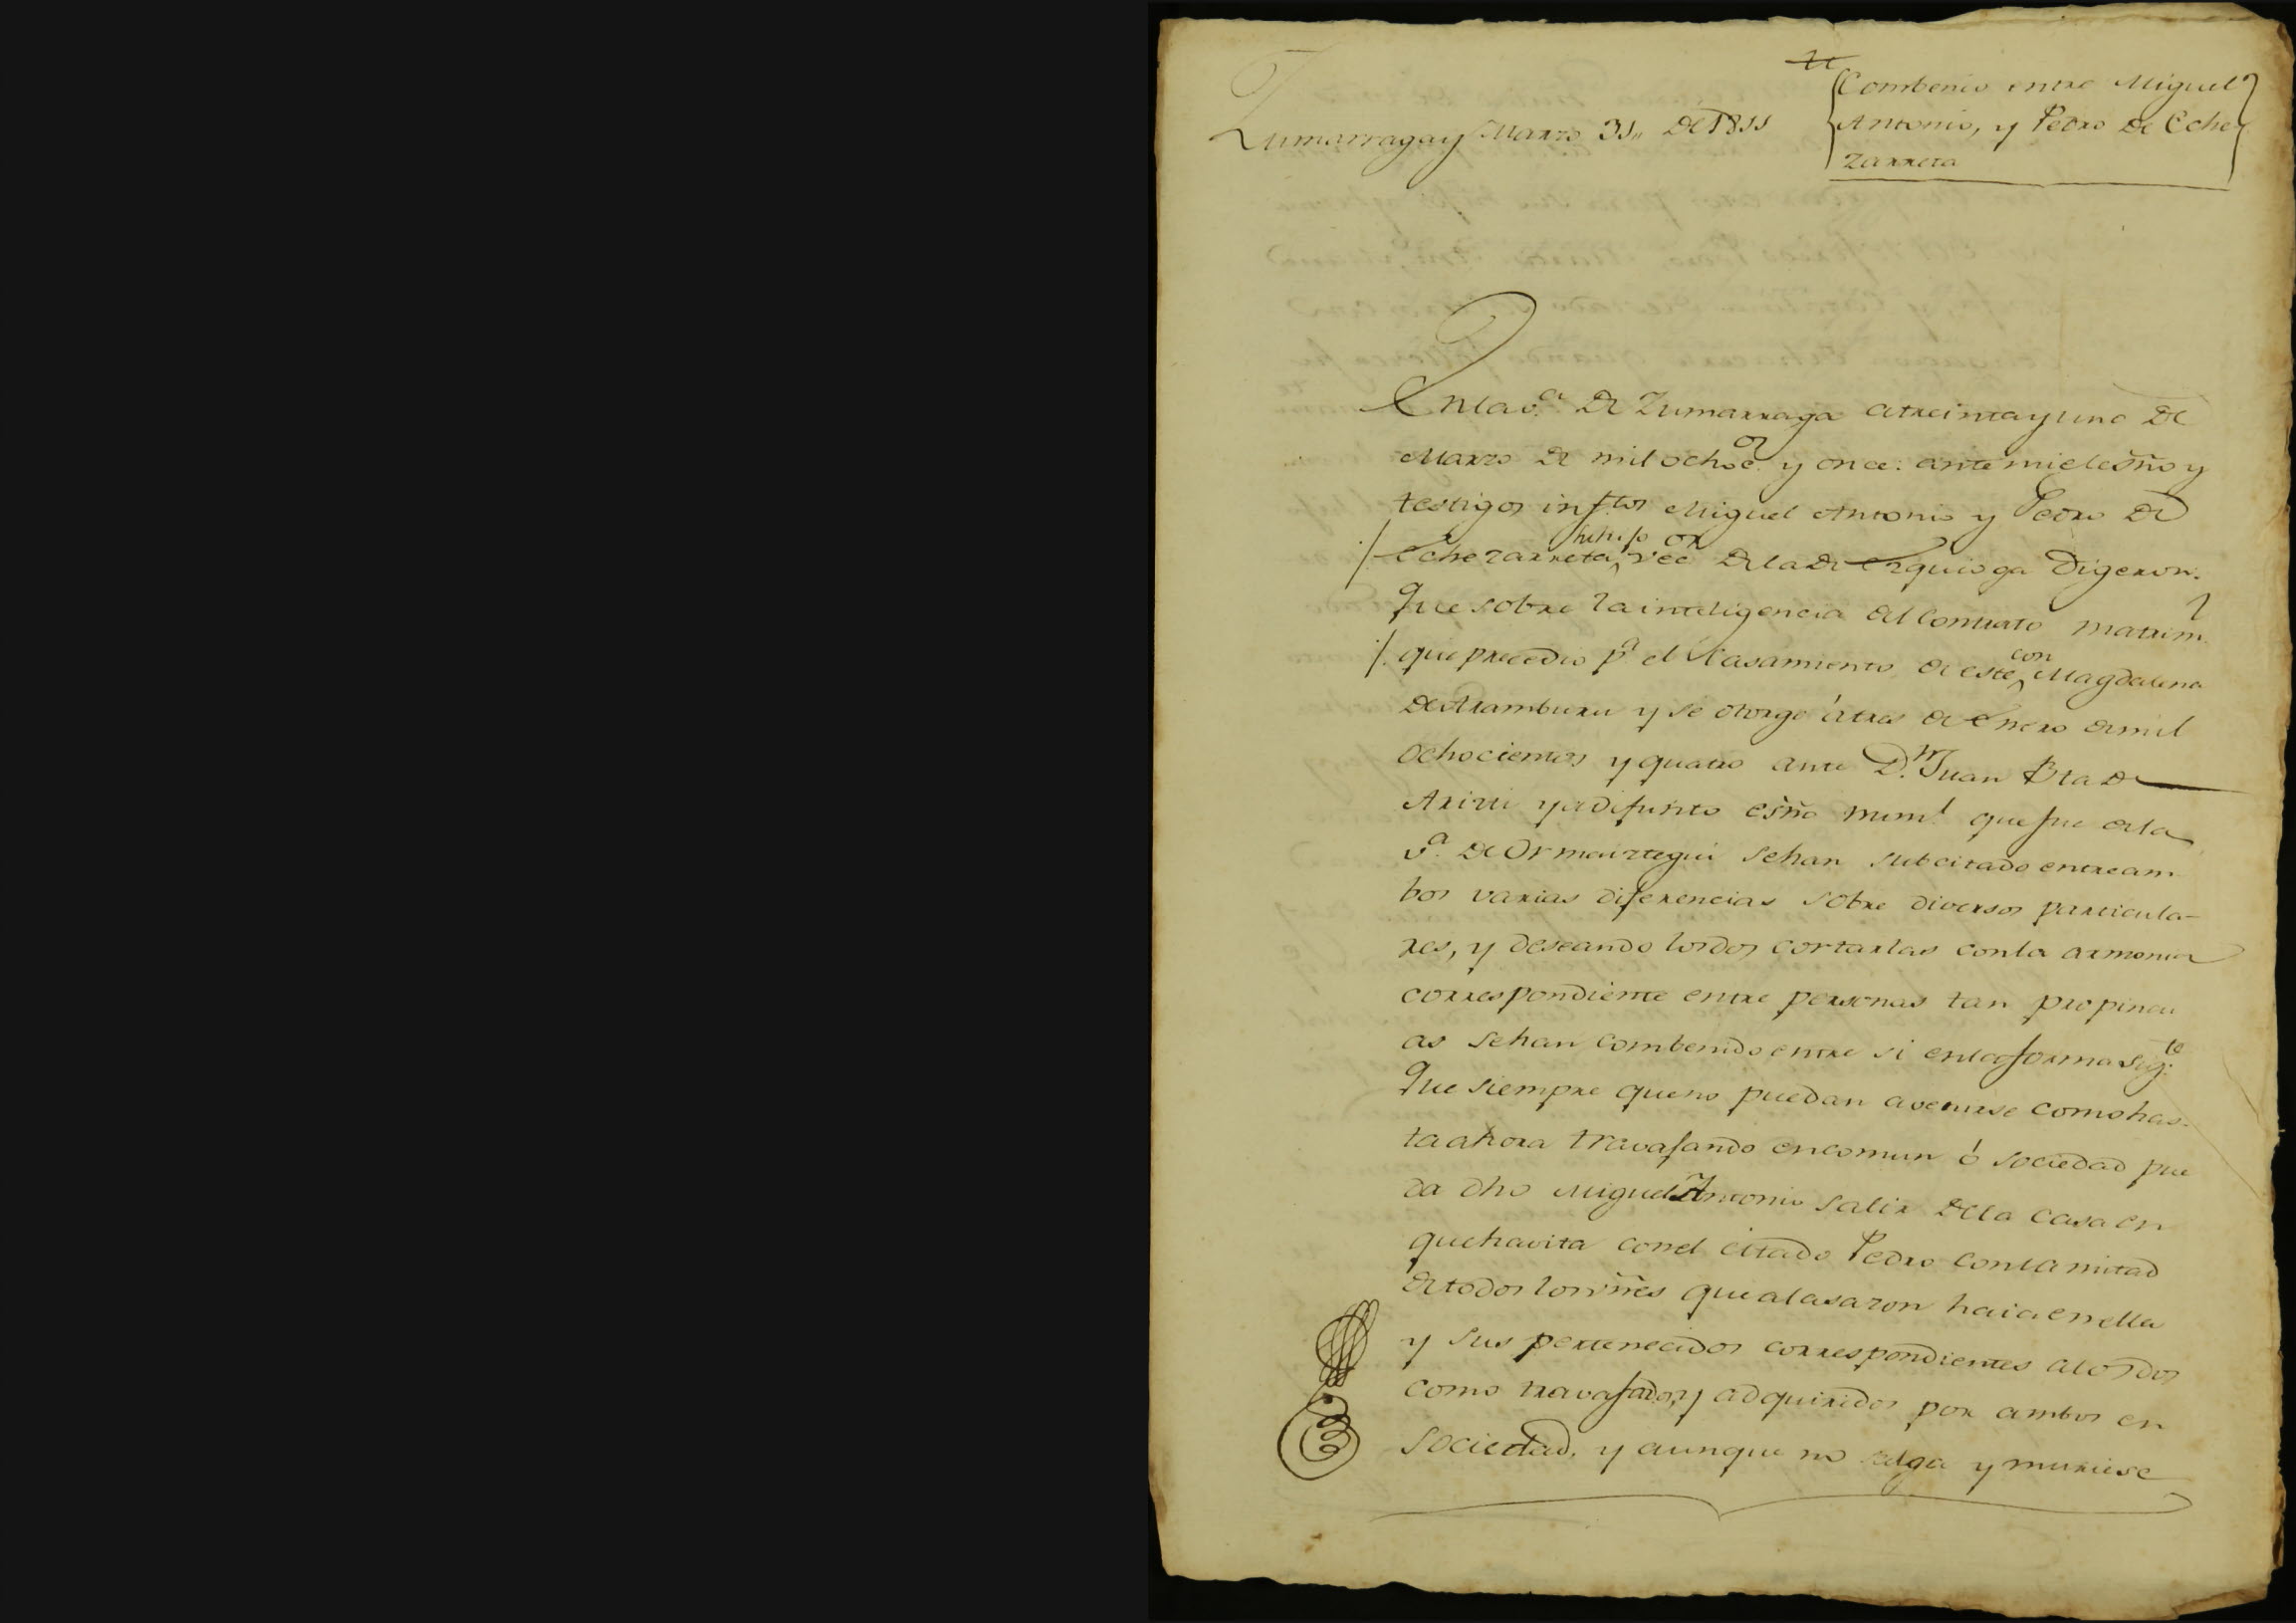 Zumarraga y Marzo 31,, de 1811
Combenio entre Miguel
Antonio, y Pedro de Eche
zarreta
En la v.ª de Zumarraga a treinta y uno de
Marzo de mil ochoc.os y once: ante mi el esño y
testigos inf.tos Miguel Antonio y Pedro de
Echezarreta, su hijo vec.os de la de Ezquioga Digeron:
Que sobre la inteligencia del Contrato matrim.l
que precedio p.ª el Casamiento de este con Magdalena
de Aramburu y se otorgo á tres de Enero de mil
ochocientos y quatro ante D.n Juan Bta de
Arizti ya difunto esño num.l que fue de la
v.ª de Ormaiztegui se han subcitado entre am
bos varias diferencias sobre diversos particula-
res, y deseando los dos cortarlas con la armonia
correspondiente entre personas tan propincu
as se han combenido entre si en la forma sig.te
Que siempre que no puedan avenirse como has-
ta ahora travajando en comun ó sociedad pue
da dho Miguel Antonio salir de la casa en
que havita con el citado Pedro con la mitad
de todos los vñes que a la sazon haia en ella
y sus pertenecidos correspondientes a los dos
como travajados, y adquiridos por ambos en
sociedad, y aunque no salga y muriese